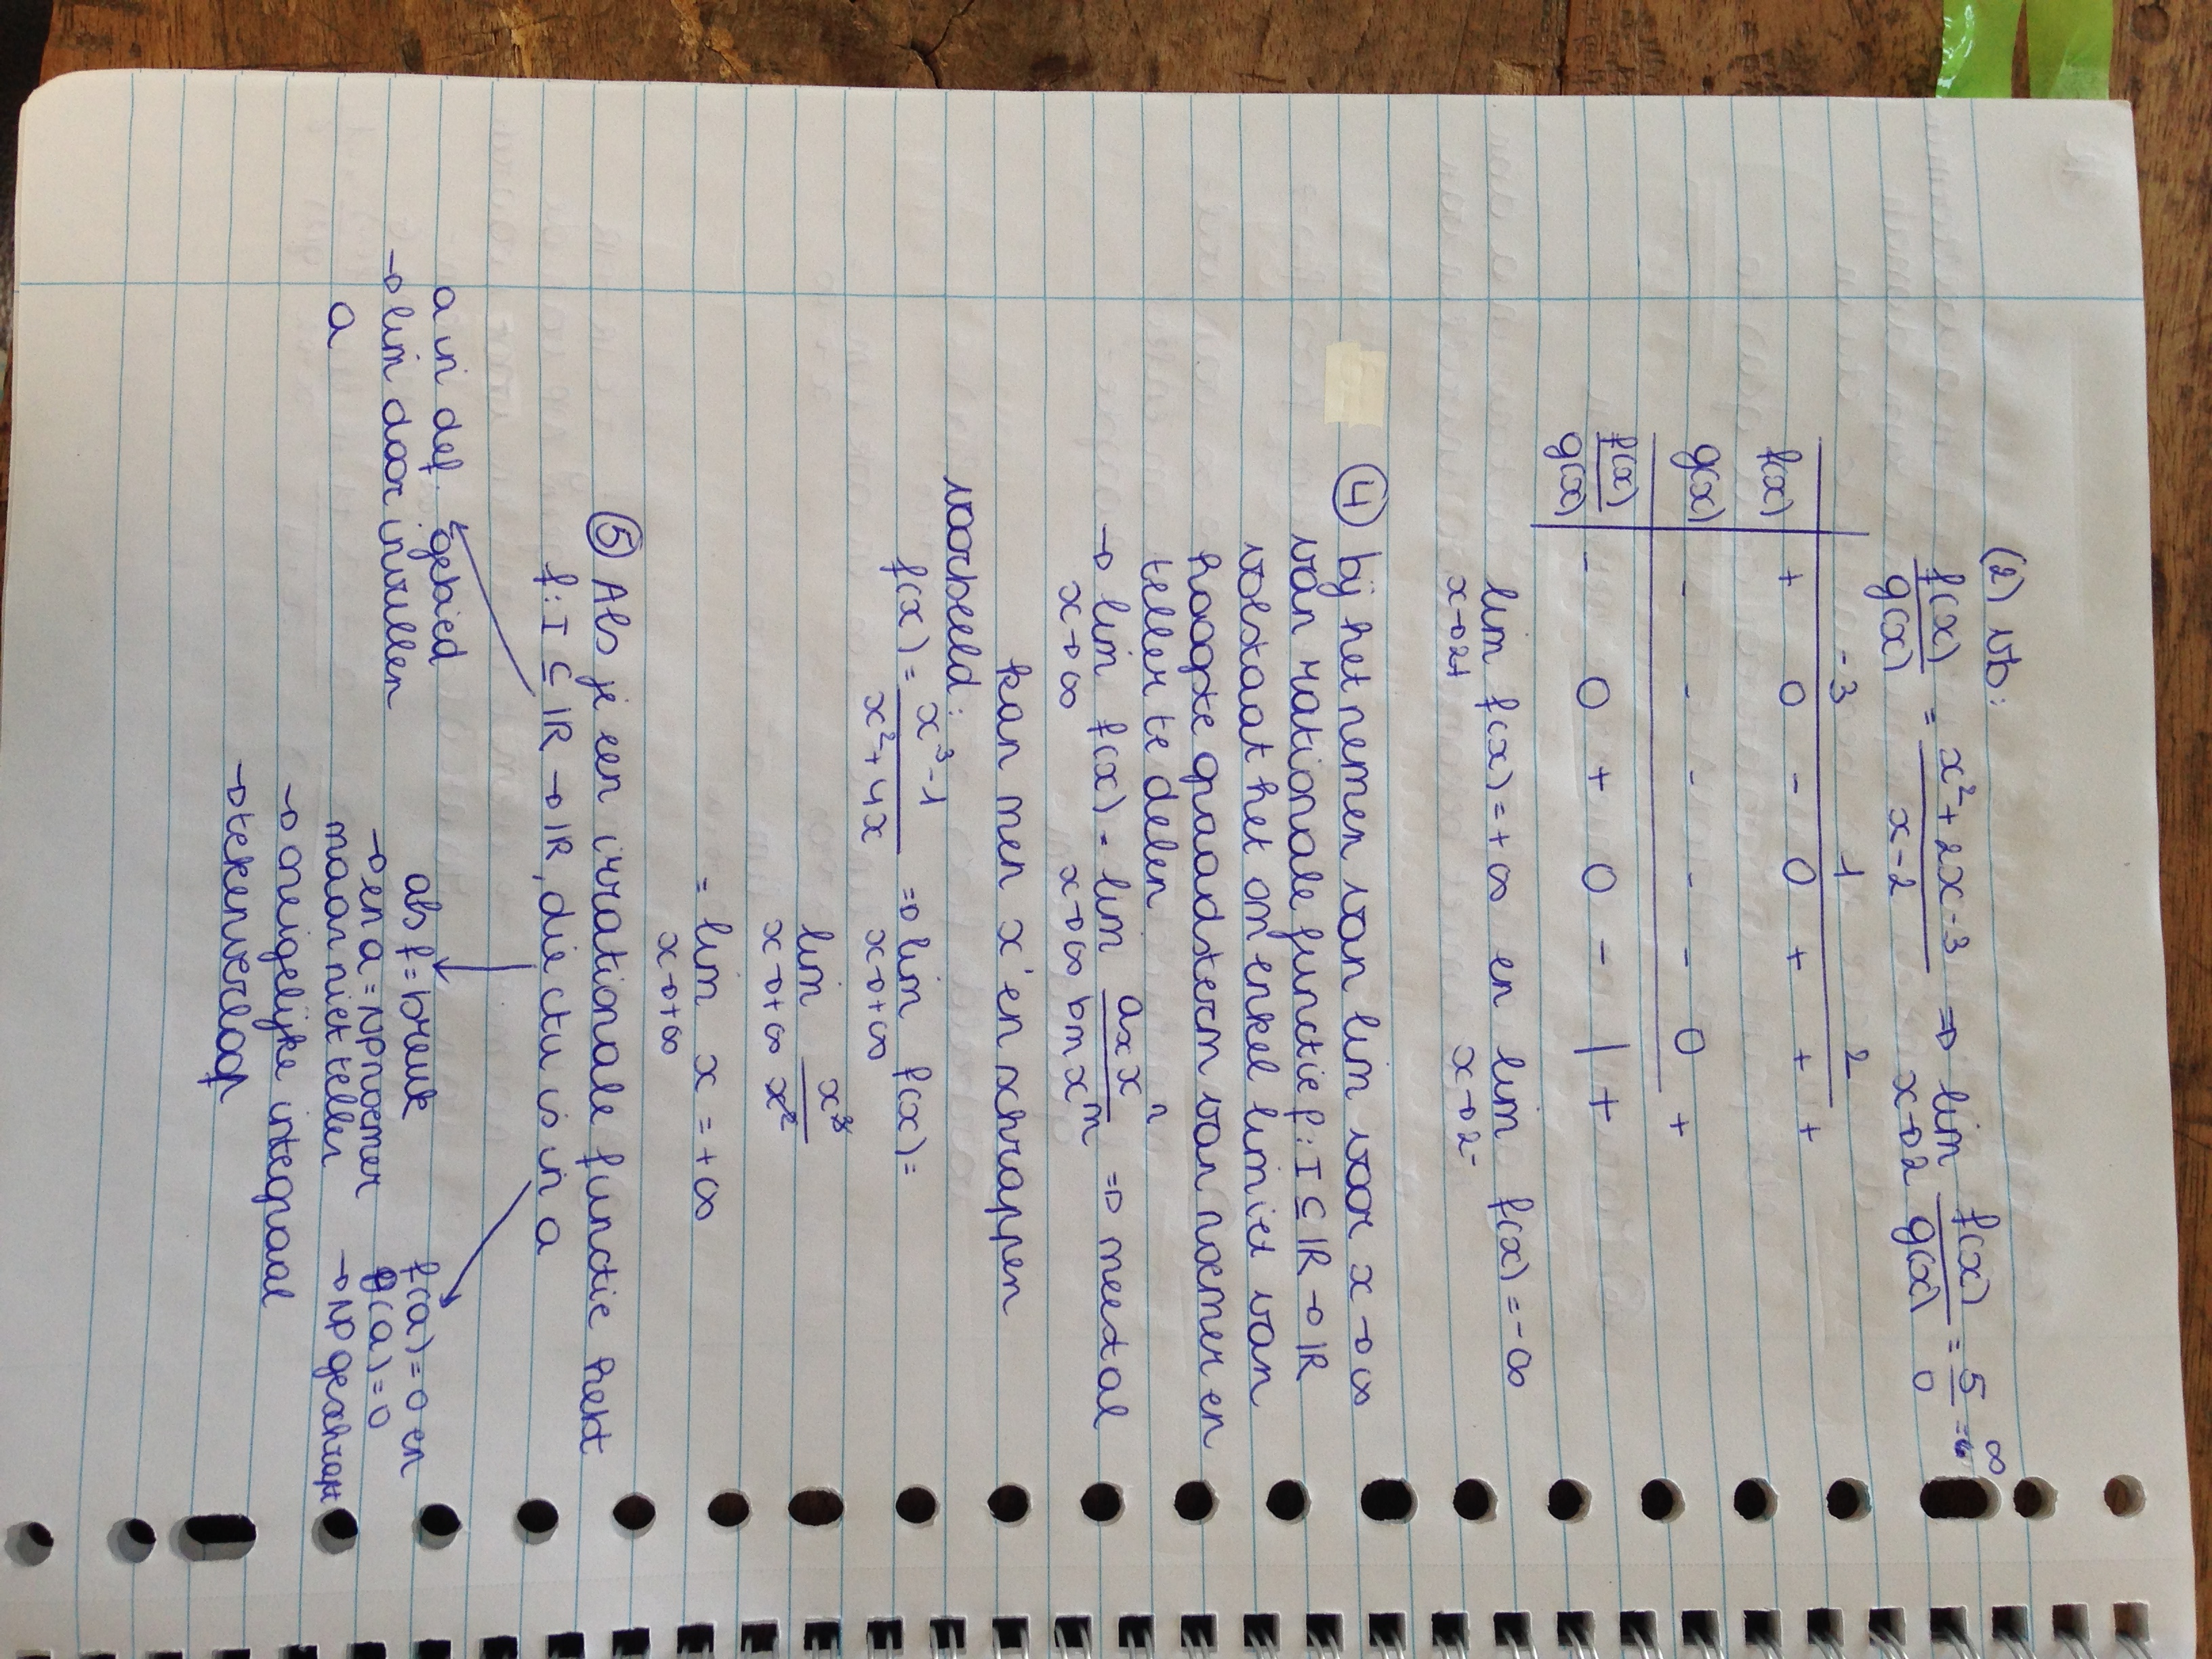 (2) vb:
f(x)/g(x) = (x² + 2x - 3)/(x - 2) ⇒ lim x→2 f(x)/g(x) = 5/0 = ∞
-3 1 2
f(x) + 0 - 0 + + +
g(x) - - - - - 0 +
f(x)/g(x) - 0 + 0 - | +
lim x→2+ f(x) = +∞ en lim x→2- f(x) = -∞
④ bij het nemen van lim voor x → ∞
van rationale functie f: I ⊆ ℝ → ℝ
volstaat het om enkel limiet van
hoogste graadsterm van noemer en
teller te delen
→ lim x→∞ f(x) = lim x→∞ (aₓxⁿ)/(bmx^m) ⇒ meestal
kan men x'en schrappen
voorbeeld:
f(x) = (x³ - 1)/(x² + 4x) ⇒ lim x→+∞ f(x) =
lim x→+∞ x³/x²
= lim x→+∞ x = +∞
⑤ Als je een irrationale functie hebt
f: I ⊆ ℝ → ℝ, die ctu is in a
a in def. gebied
→ lim door invullen
a
als f = breuk
→ en a = NP noemer
maar niet teller
→ oneigelijke integraal
→ tekenverloop
f(a) = 0 en
g(a) = 0
→ NP geschrapt